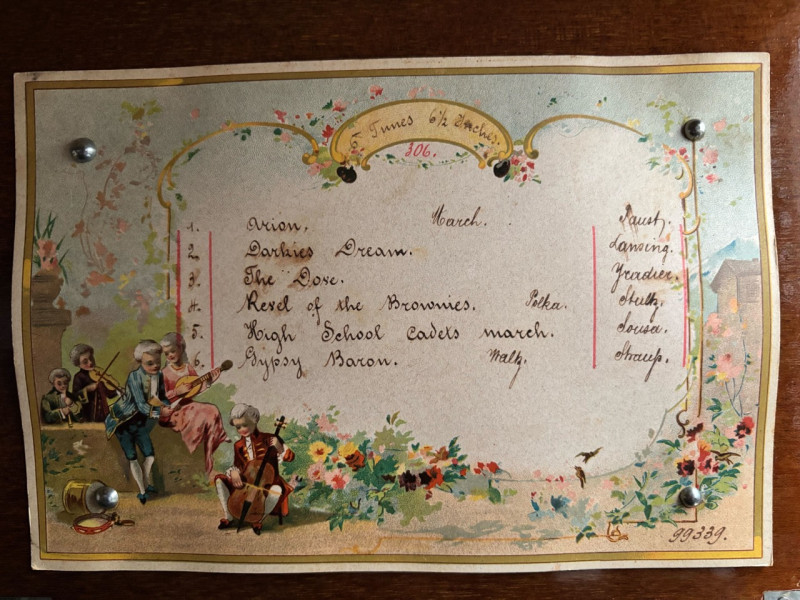 6 Tunes 6½ Inches.
306.
1. Arion. March. Faust.
2. Darkies Dream. Lansing.
3. The Dove. Yradier.
4. Revel of the Brownies. Polka. Stultz.
5. High School Cadets march. Sousa.
6. Gypsy Baron. Waltz. Strauß.
99339.